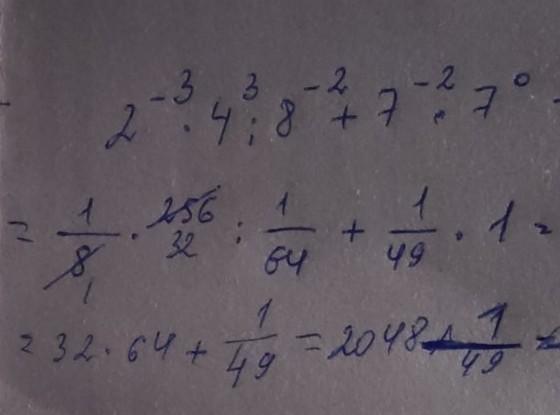 2⁻³ · 4³ : 8⁻² + 7⁻² · 7⁰
= 1/8 · 256 : 1/64 + 1/49 · 1 =
1 32
= 32 · 64 + 1/49 = 2048 1/49 =